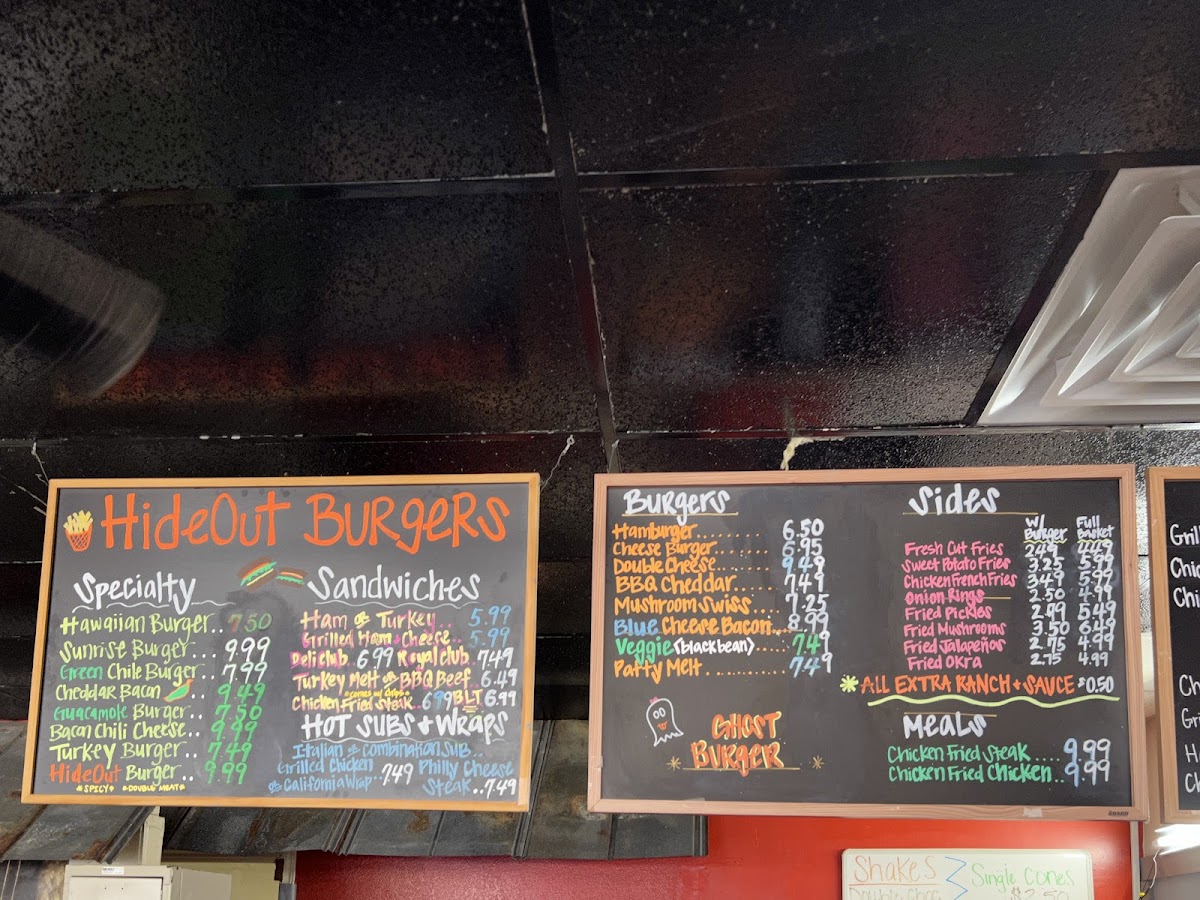 HideOut Burgers
Specialty
Hawaiian Burger.. 7.50
Sunrise Burger... 9.99
Green Chile Burger 7.99
Cheddar Bacon 9.49
Guacamole Burger.. 7.50
Bacon Chili Cheese.. 9.99
Turkey Burger.. 7.49
HideOut Burger.. 9.99
*SPICY* *DOUBLE MEAT*
Sandwiches
Ham or Turkey.. 5.99
Grilled Ham + Cheese.. 5.99
Deli club 6.99 Royal club 7.49
*comes w/ chips*
Turkey Melt or BBQ Beef 6.49
Chicken Fried Steak.. 6.99 BLT 6.99
Hot Subs + Wraps
Italian or Combination Sub..
Grilled Chicken
or California Wrap 7.49 Philly Cheese
Steak.. 7.49
Burgers
Hamburger... 6.50
Cheese Burger........ 6.95
Double Cheese....... 9.49
BBQ Cheddar... 7.49
Mushroom Swiss.... 7.25
Blue Cheese Bacon... 8.99
Veggie (black bean)..... 7.49
Patty Melt........... 7.49
GHOST
BURGER
Sides
W/ Burger Full Basket
Fresh Cut Fries 2.49 4.49
Sweet Potato Fries 3.25 5.99
Chicken French Fries 3.49 5.99
Onion Rings 2.50 4.99
Fried Pickles 2.99 5.49
Fried Mushrooms 3.50 6.49
Fried Jalapeños 2.75 4.99
Fried Okra 2.75 4.99
*ALL EXTRA RANCH + SAUCE $0.50
Meals
Chicken Fried Steak..... 9.99
Chicken Fried Chicken.. 9.99
Shakes
Single Cones
$2.50